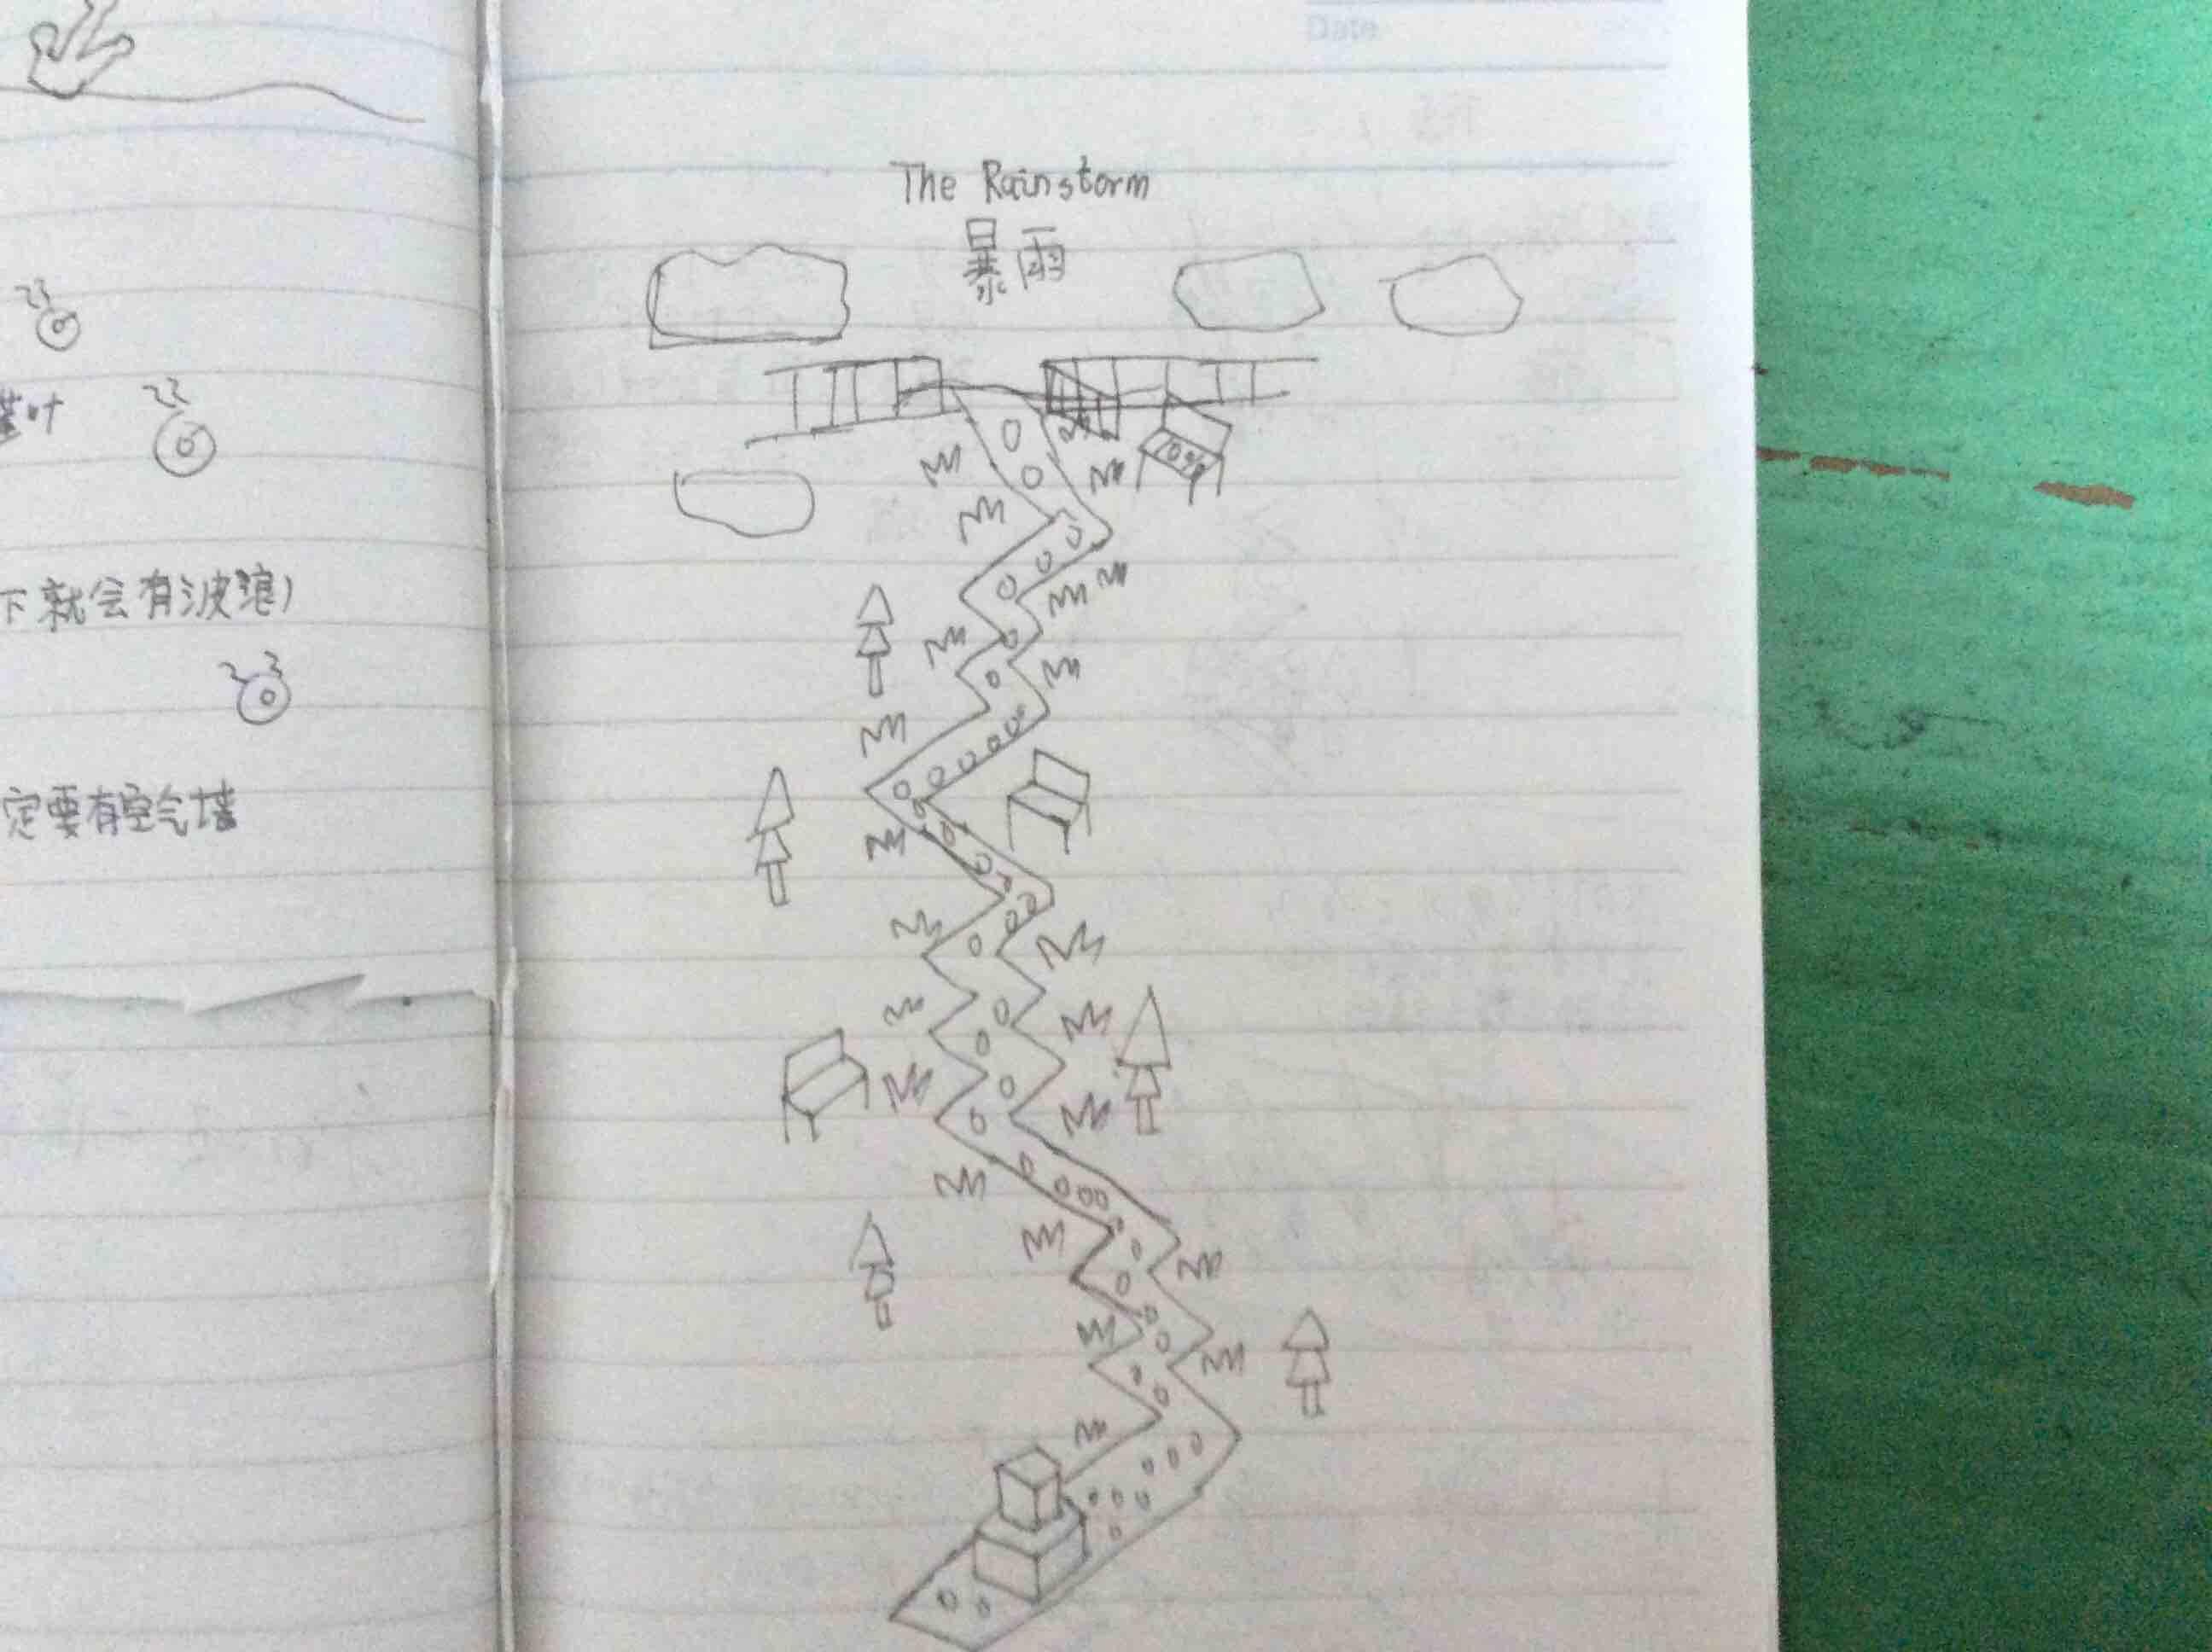 叶
下就会有波浪)
定要有空气墙
Date
The Rainstorm
暴雨
10%